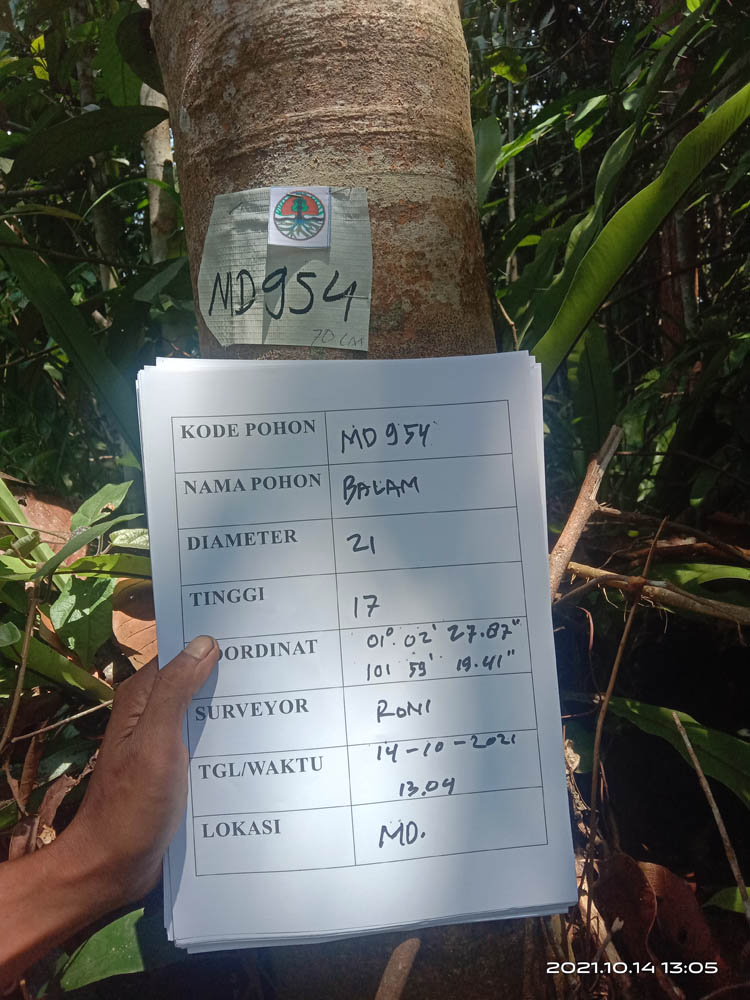 MD954
70 cm
KODE POHON MD954
NAMA POHON BALAM
DIAMETER 21
TINGGI 17
OORDINAT 01° 02' 27.87"
101 59' 19.41"
SURVEYOR RONI
TGL/WAKTU 14-10-2021
13.04
LOKASI MD.
2021.10.14 13:05